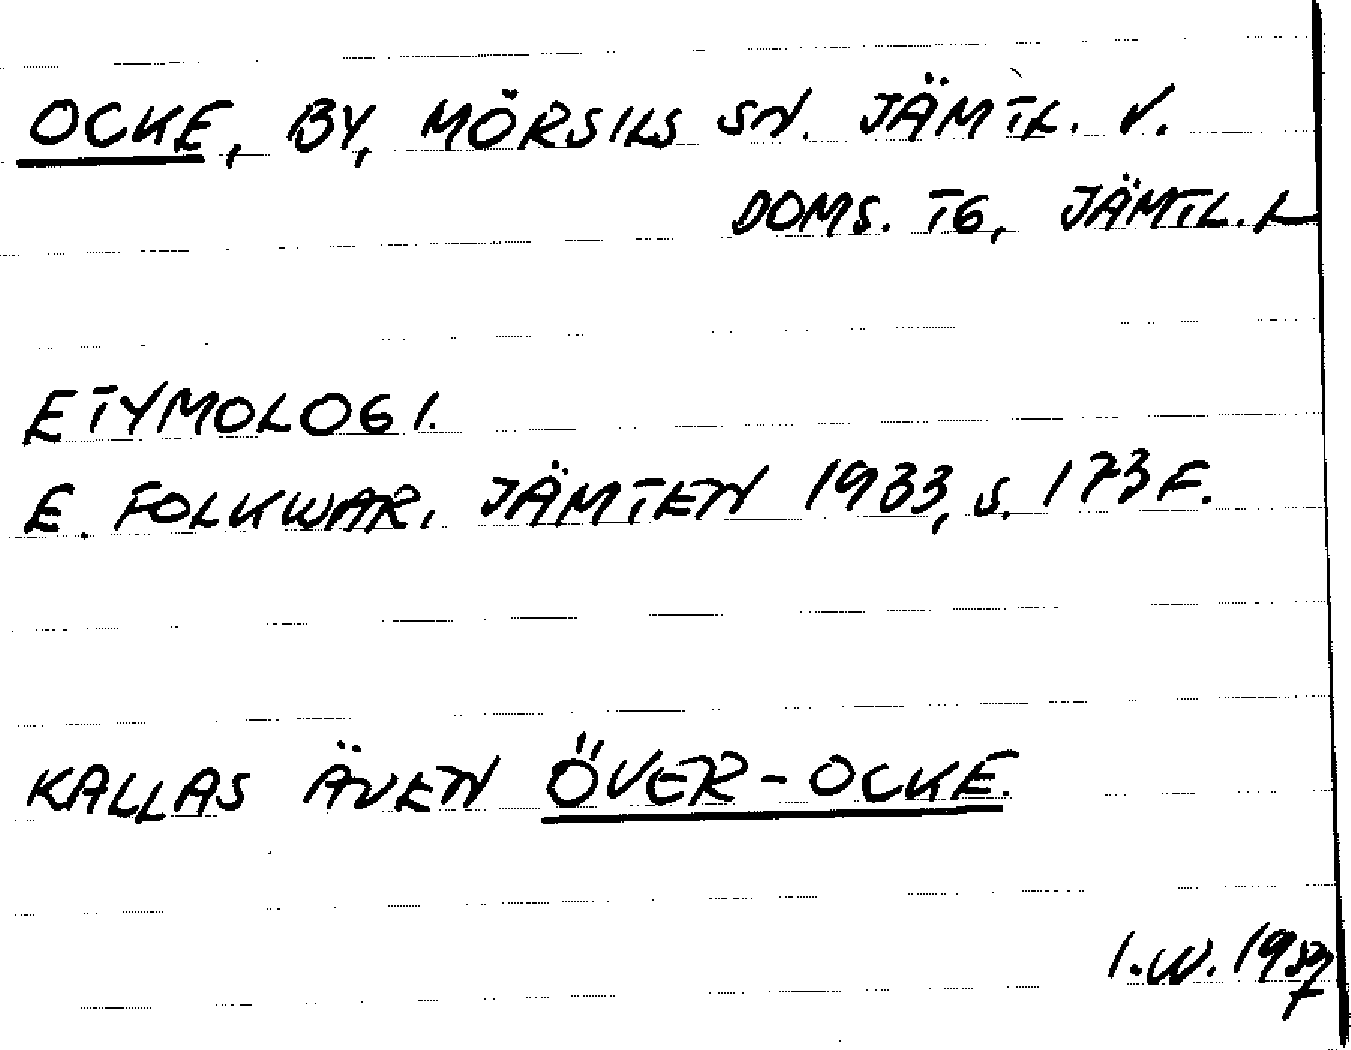 OCKE, BY, MÖRSILS SN. JÄMTL. V.
DOMS. TG, JÄMTL. L
ETYMOLOGI.
E. FOLKWAR, JÄMTEN 1933, S. 173 F.
KALLAS ÄVEN ÖVER-OCKE.
I.W. 1957